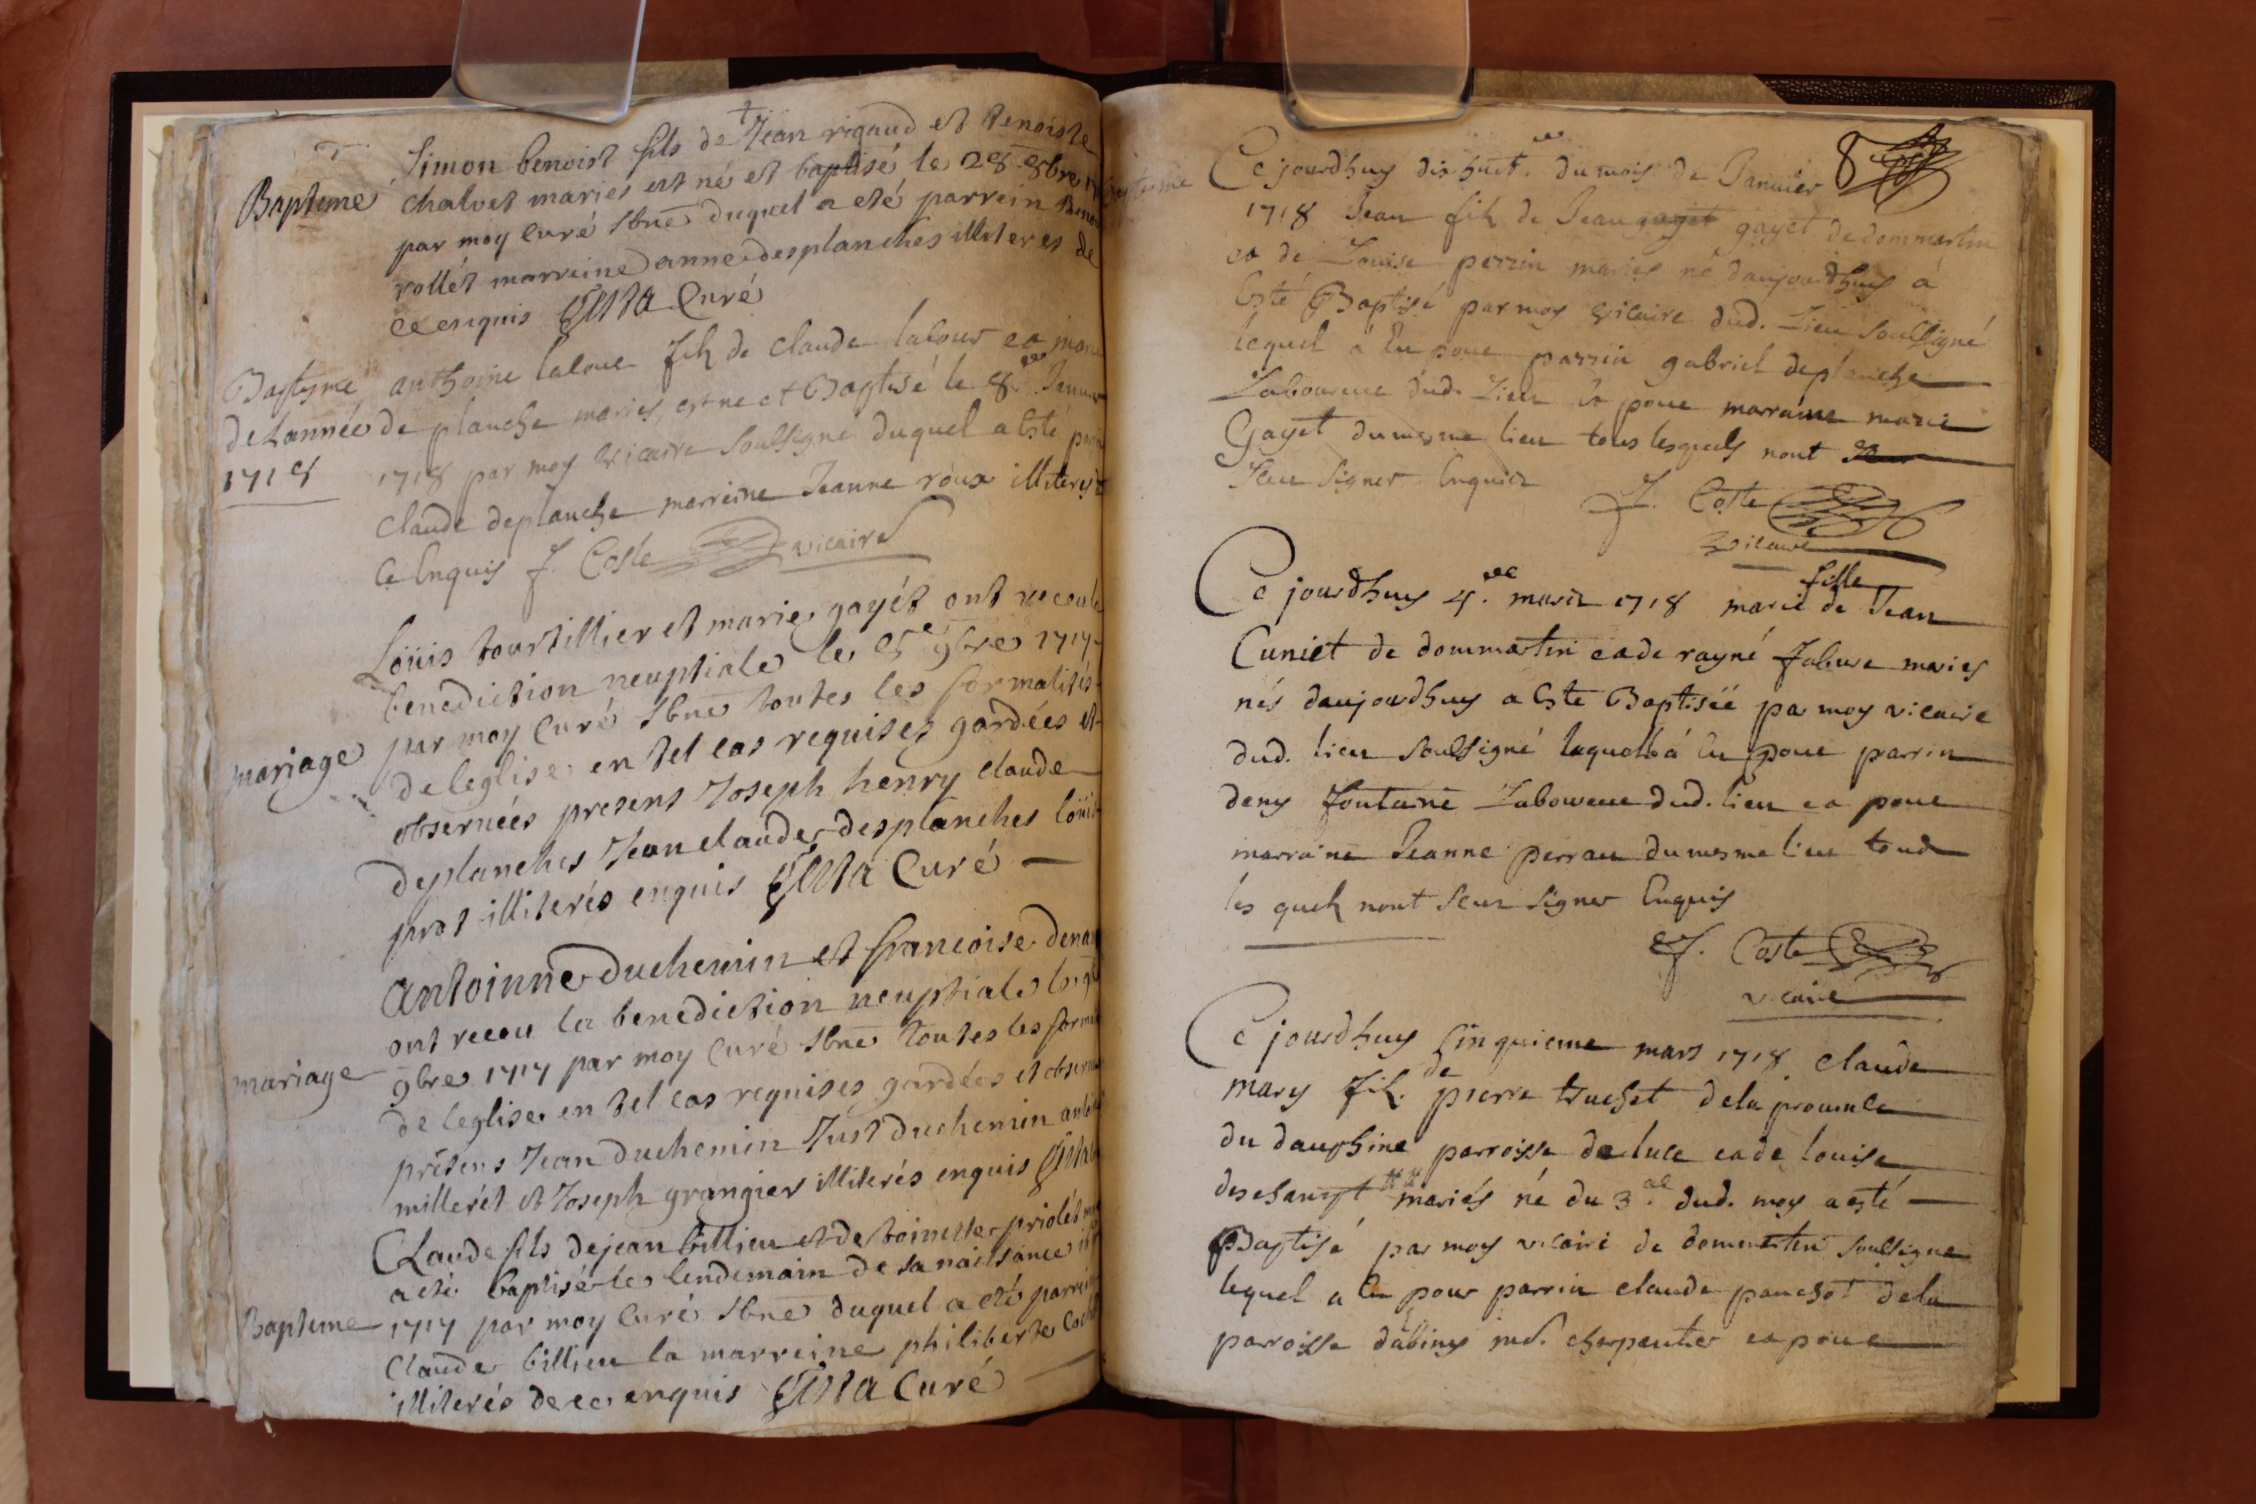 Baptême
Simon benoist fils de Jean rigaud et benoiste
chalvet mariés est né et baptisé le 28 8bre
par moy curé sbne duquel a eté parrein
rollét marreine anne desplanches illiteres de
ce enquis Curé
Baptyme
de Lannée
1718
anthoine latour fils de claude latour et
de planche mariés, est ne et Baptisé le 8 Janvier
1718 par moy vicaire soussigné duquel a esté
claude deplanche marreine Jeanne roux illiterés
ce Enquis J. Coste vicaire
mariage
Loüis tourtillier et marie gayét ont receu la
benediction neuptiale le 9bre 1717
par moy curé sbne toutes les formalités
de leglise en tel cas requises gardées et
observées presens Joseph henry claude
deplanches Jean claude desplanches loüis
prot illiterés enquis Curé
mariage
Antoinne duchemin et francoise
ont receu la benediction neuptiale le
9bre 1717 par moy curé sbne toutes les
de leglise en tel cas requises gardées et
présens Jean duchemin Just duchemin
millerét et Joseph grangier illiterés enquis
Baptême
Claude fils de jean billieu et de toinette priolét
a eté baptisé le lendemain de sa naissance
1717 par moy curé sbne duquel a eté parrein
Claude billieu la marreine philiberte
illiterés de ce enquis Curé
8
Ce jourdhuy dix huit du mois de Janvier
1718 Jean fils de Jean gayet gayet de dommartin
et de Louise perrin mariés né daujourdhuy à
Esté Baptisé par moy vicaire dud. Lieu soussigné
lequel à Eu pour parrin gabriel deplanche
Laboureur dud. Lieu et pour marraine marie
Gayet du mesme lieu tous lesquels nont
sceu signer Enquis
J. Coste
vicaire
fille
Ce jourdhuy 4. mars 1718 marie de Jean
Cuniet de dommartin et de rayné fabure mariés
nés daujourdhuy a Este Baptiséé par moy vicaire
dud. lieu soussigné laquelle á Eu pour parrin
deny fontaine Laboureur dud. lieu et pour
marraine Jeanne perrau du mesme lieu tous
les quels nont sceu signer Enquis
J. Coste
vicaire
Ce jourdhuy cinquieme mars 1718 claude
de
mary fils. pierre truchet dela province
du dauphine parroisse de luce et de louise
mariés né du 3. dud. moy a esté
Baptisé par moy vicaire de dommartin soussigne
lequel a Eu pour parrin claude ponchot dela
parroisse dabiny charpentier et pour